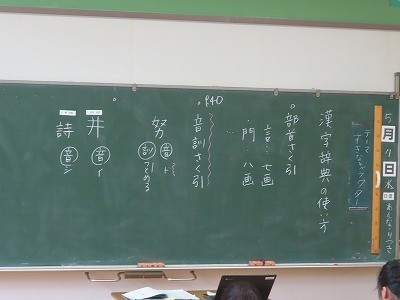 5月7日水
テーマ
すきなキャラクター
漢字辞典の使い方
○部首さく引
言…七画
門 八画
…
P40
○音訓さく引
努 音 ド
訓 つとめる
井 音 イ
詩 音 シ